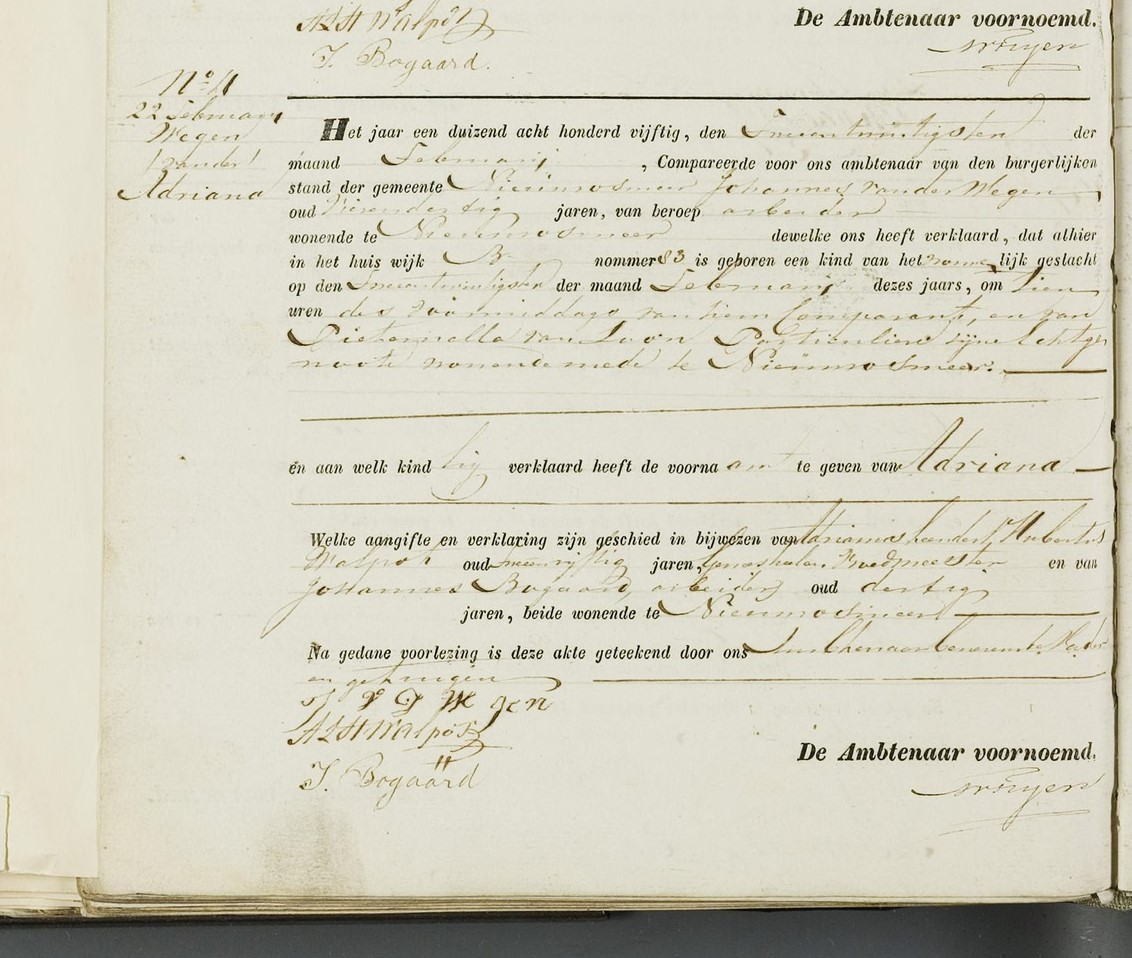 A L H Walpot
De Ambtenaar voornoemd.
J. Bogaard.
No 4
22 Februarij
Wegen
(vander)
Adriana
Het jaar een duizend acht honderd vijftig, den Tweeentwintigsten der
maand Februarij, Compareerde voor ons ambtenaar van den burgerlijken
stand der gemeente Nieuwvosmeer Johannes van der Wegen,
oud Vierendertig jaren, van beroep arbeider
wonende te Nieuwvosmeer dewelke ons heeft verklaard, dat alhier
in het huis wijk B. nommer 83 is geboren een kind van het vrouwelijk geslacht
op den Tweeentwintigsten der maand Februarij dezes jaars, om tien
uren des voormiddags van hem Comparant, en van
Pieternella van Loon Particuliere zijne Echtge
noote wonende mede te Nieuwvosmeer.
en aan welk kind hij verklaard heeft de voornaam te geven van Adriana
Welke aangifte en verklaring zijn geschied in bijwezen van Hubertus
Walpot oud jaren, en van
Johannes Bogaard, arbeider oud dertig
jaren, beide wonende te Nieuwvosmeer
Na gedane voorlezing is deze akte geteekend door ons Ambtenaar benevens de Vader
en getuigen
J V D Wegen
A L H Walpot
De Ambtenaar voornoemd.
J. Bogaard